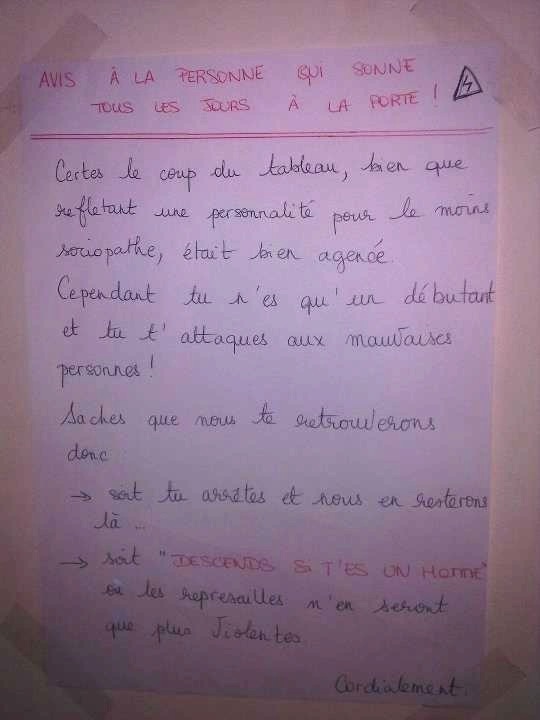 AVIS À LA PERSONNE QUI SONNE
TOUS LES JOURS À LA PORTE !
Certes le coup du tableau, bien que
reflétant une personnalité pour le moins
sociopathe, était bien agencé.
Cependant tu n'es qu'un débutant
et tu t'attaques aux mauvaises
personnes !
Saches que nous te retrouverons
donc
→ soit tu arrêtes et nous en resterons
là ...
→ soit "DESCENDS Si T'ES UN HOMME"
ou les represailles n'en seront
que plus violentes.
Cordialement.